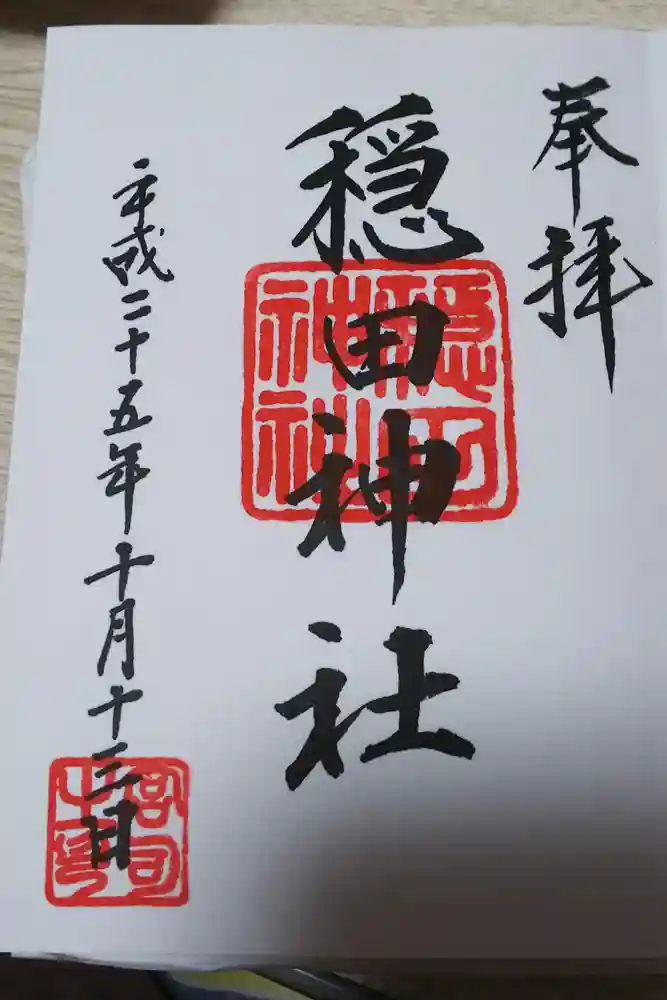 奉拝
穏田神社
穏田
神社
平成二十五年十月十三日
宮司
之印